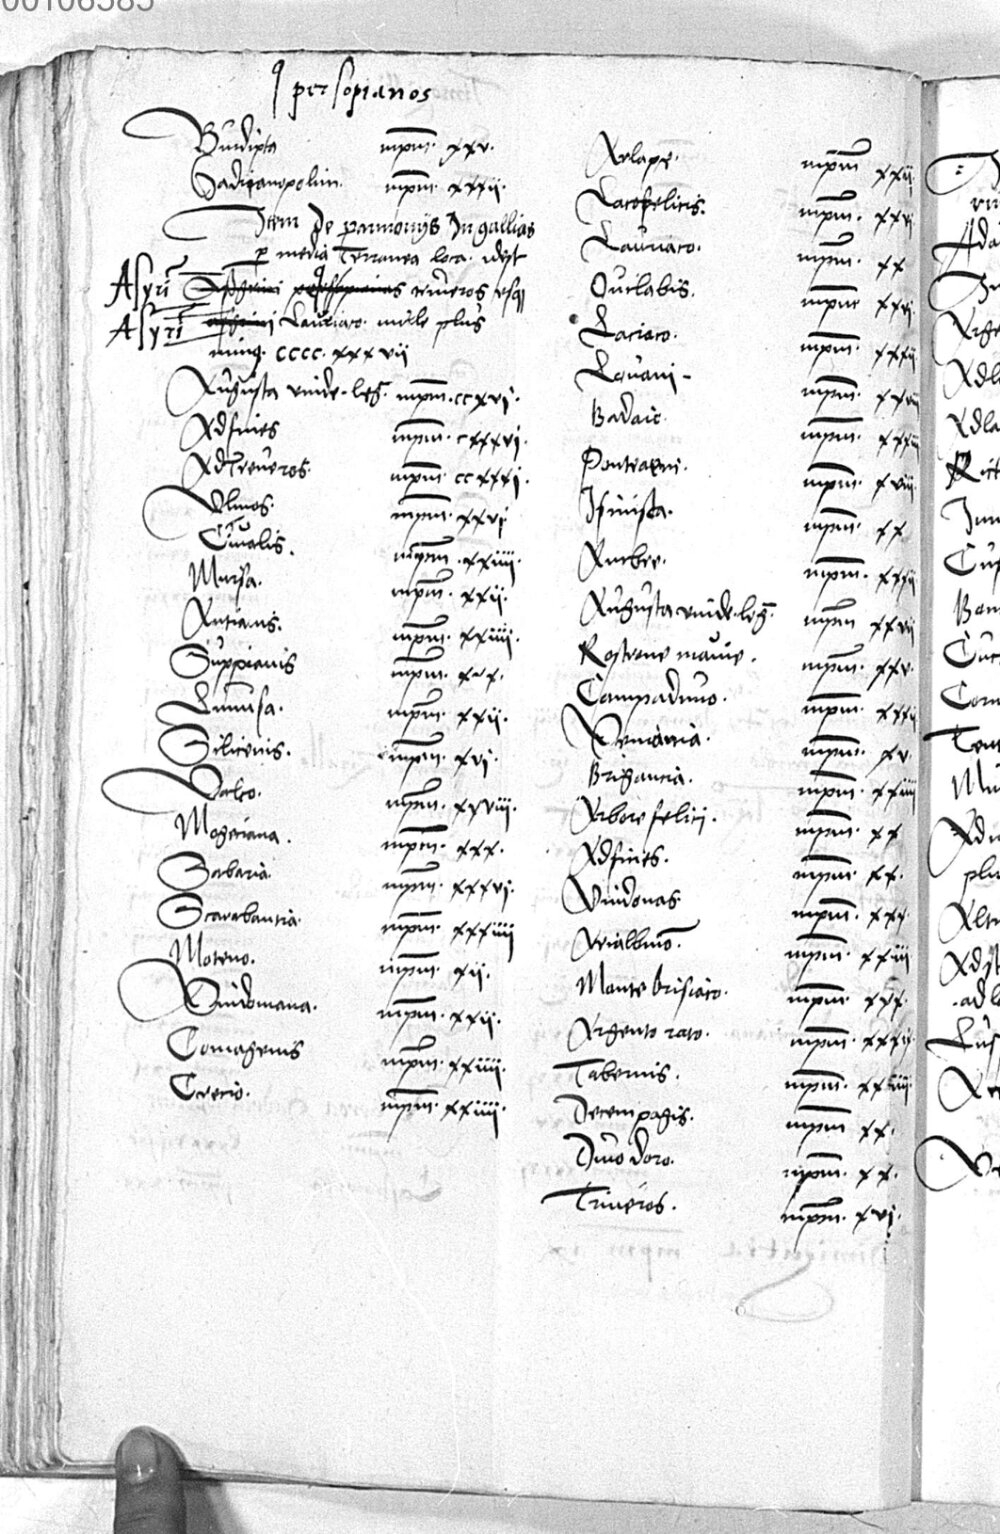 00106585
per sopianos
Burdipta mpm. xxv.
Hadrianopolim. mpm. xxxii.
Item de pannonijs In gallias
per media Terranea loca. idest
Asyri
Asyri Lauriaco. mille plus
minus. cccc. xxxvii
Augusta vinde. leg. mpm. ccxvi.
Adfines mpm. cxxxvi.
AdTreveros. mpm. ccxxxi.
Vlmos. mpm. xxvi
Civalis. mpm. xxiiii.
Mursa. mpm. xxii.
Antianis. mpm. xxiiii.
Suppianis mpm. xxx.
Limusa. mpm. xxii.
Silicenis. mpm. xvi.
Valco. mpm. xxviii.
Mogeciana. mpm. xxx.
Sabaria mpm. xxxvi.
Scarabantia. mpm. xxxiiii
Moteno. mpm. xii.
Vindomana. mpm. xxii.
Comagenis mpm. xxiiii.
Cetio. mpm. xxiiii.
Arlape. mpm xxii
Lacofelicis. mpm. xxvi
Lauriaco. mpm. xx
Ovilabis. mpm xxvi
Laciaco. mpm. xxxii
Iovavi- mpm. xxviii
Badaic. mpm. xxxiii
Ponteaeni. mpm. xviii
Isinisca. mpm. xx
Ambre. mpm. xxxii
Augusta vinde. leg. mpm xxvii
Rostrone mavie. mpm. xxv.
Campaduno. mpm. xxxii
Vemania. mpm. xv.
Brigancia. mpm. xxiiii
Arbore felici. mpm. xx
Adfines. mpm. xx.
Vindonas. mpm. xxx.
Arialbino. mpm. xxiii
Monte brisiaco. mpm. xxx.
Argento rato. mpm. xxxii
Tabernis. mpm. xxiiii
Decempagis. mpm xx.
Divo doro. mpm. xx.
Triveros. mpm. xvi.